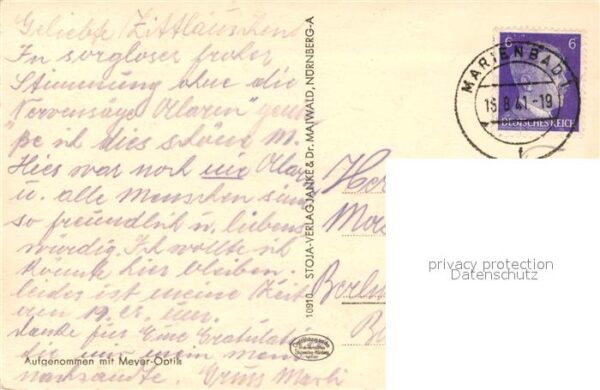 Geliebte Zittläuschen
In sorgloser froher
Stimmung ohne die
"Nervensäge Alarm" genie-
ße ich dies schöne M.
Hier war noch nie Alarm
u. alle Menschen sind
so freundlich u. liebens
würdig. Ich wollte ich
könnte hier bleiben.
leider ist meine Zeit
um.
danke für Eure Gratulati
mir mein
nachsandte. Gruss
Aufgenommen mit Meyer-Optik
10910 STOJA-VERLAG JANKE & Dr. MAIWALD, NÜRNBERG-A
MARIENBAD
16.8.41.-19
6 6
DEUTSCHES REICH
Berlin
privacy protection
Datenschutz